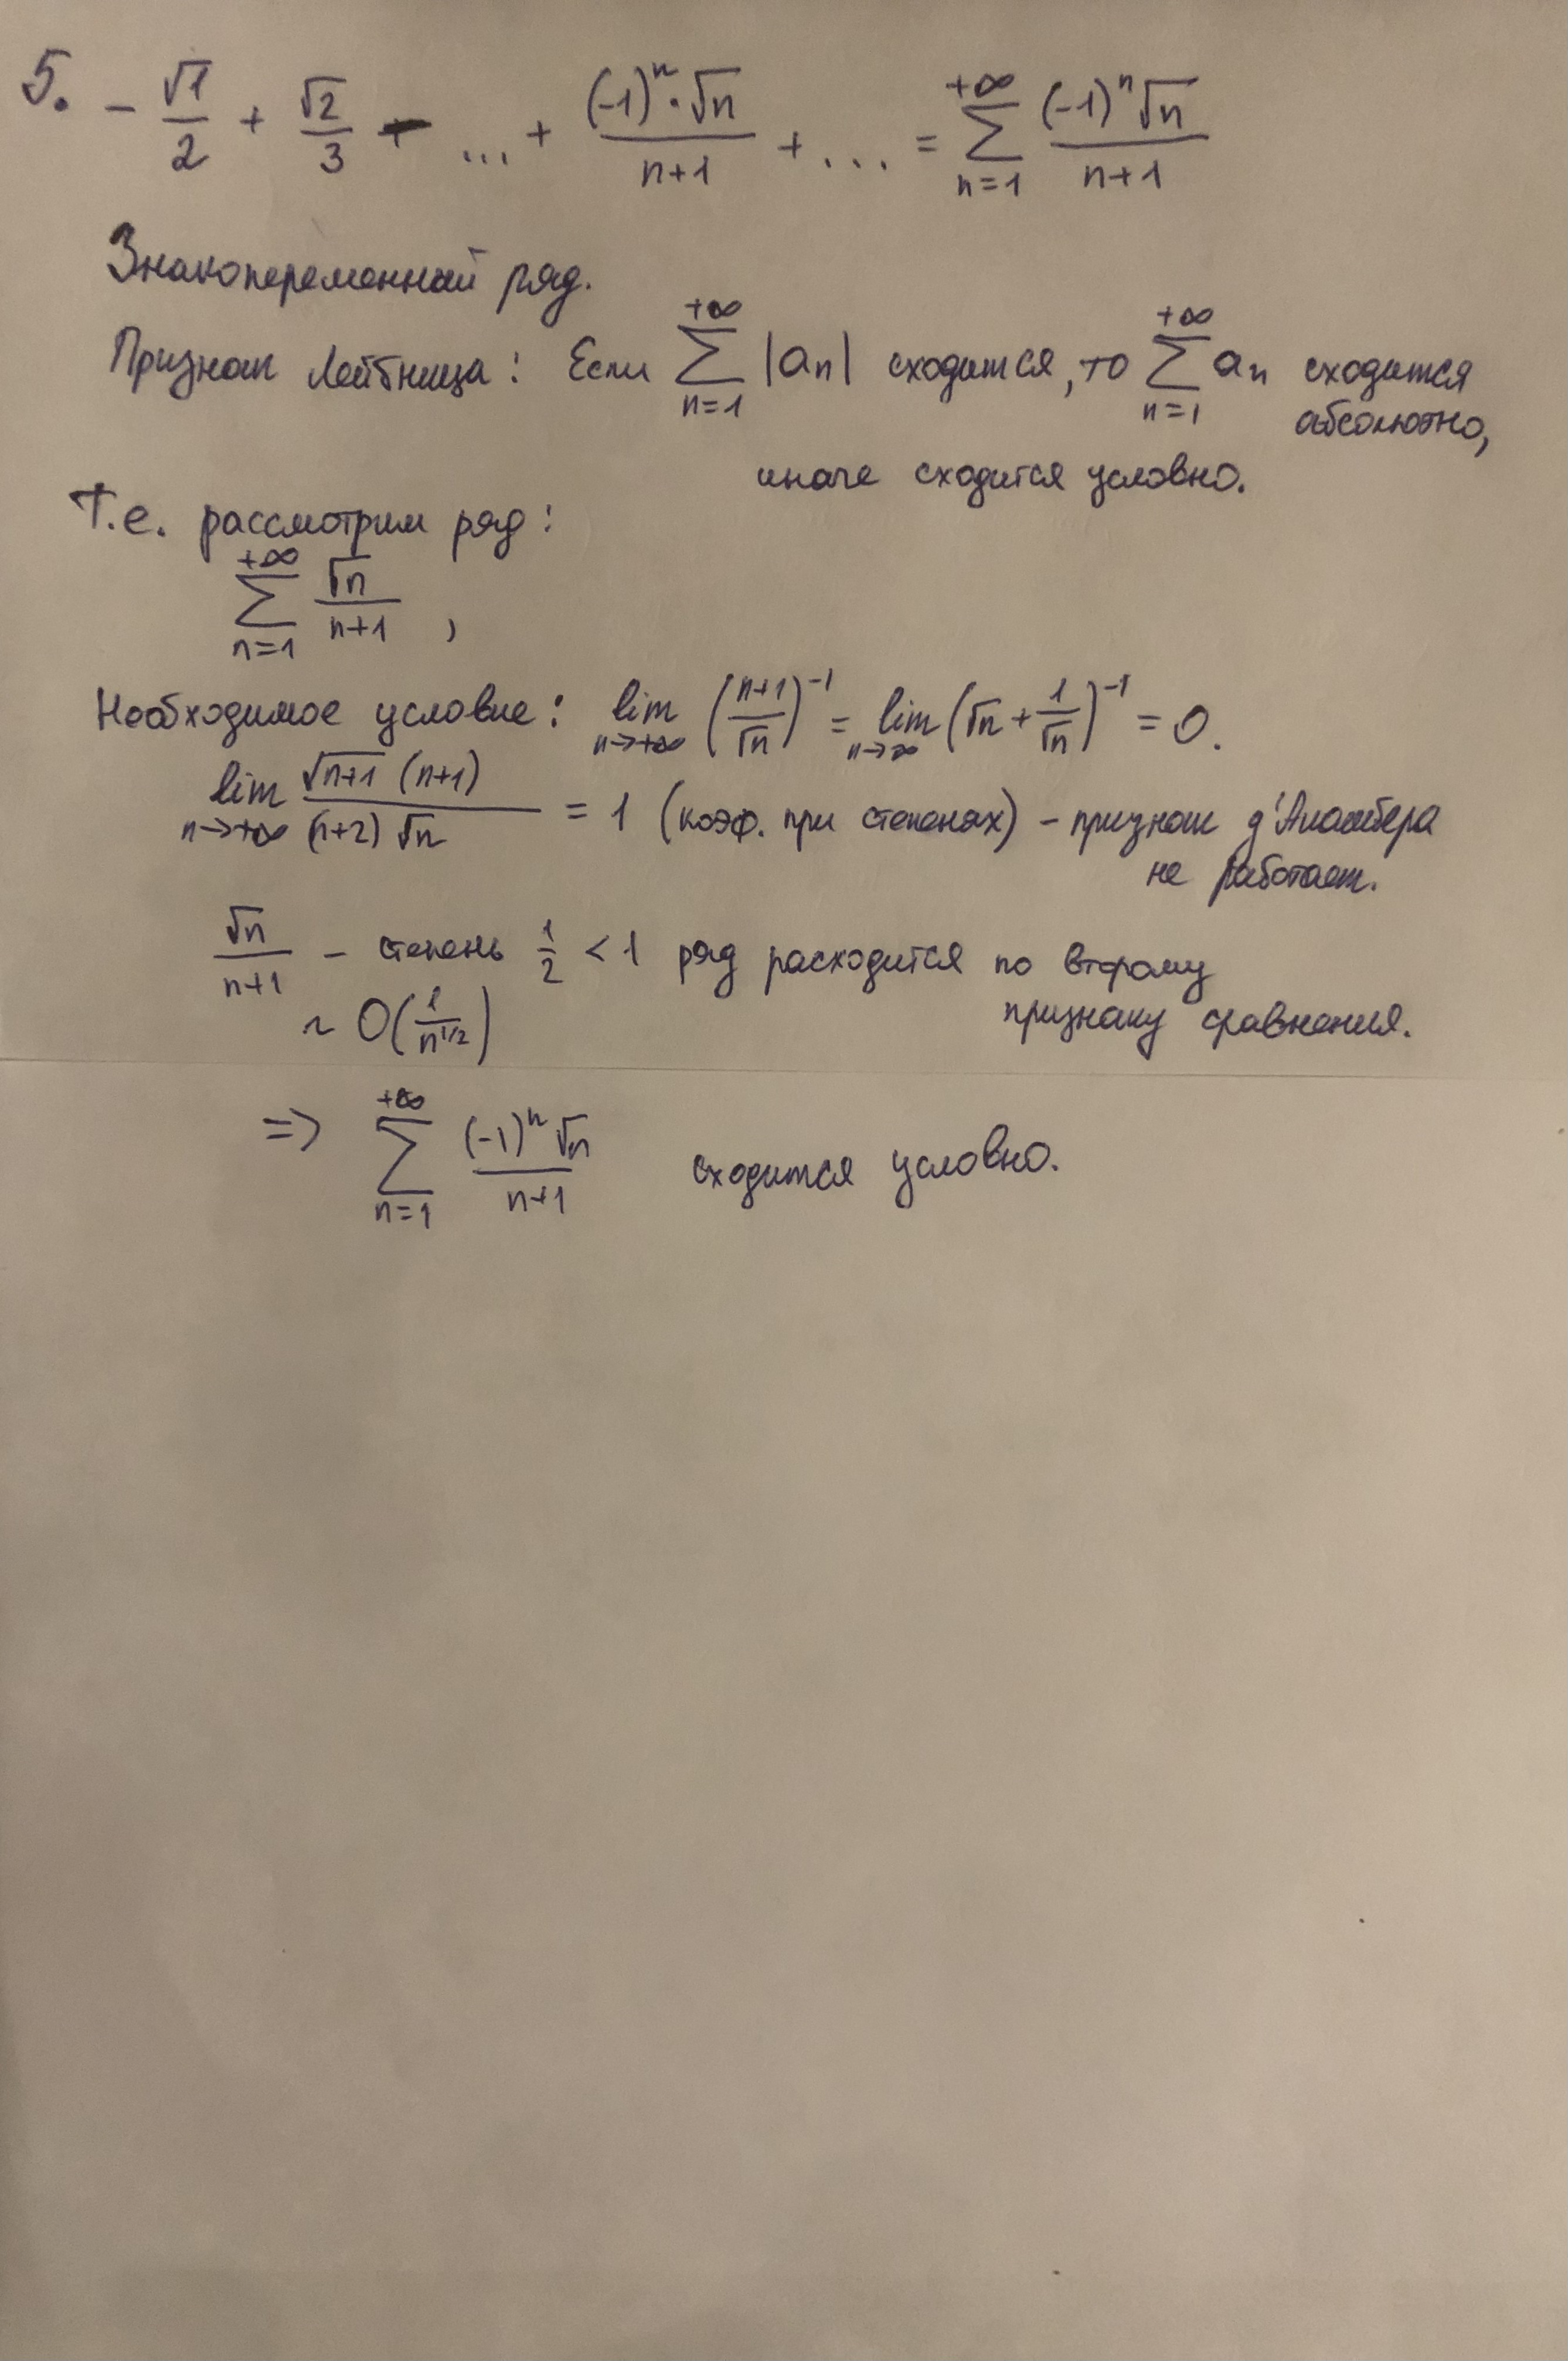 5. - √1/2 + √2/3 - ... + (-1)ⁿ·√n/(n+1) + ... = +∞ ∑ n=1 (-1)ⁿ√n/(n+1)
Знакопеременный ряд.
Признак Лейбница: Если +∞ ∑ n=1 |aₙ| сходится, то +∞ ∑ n=1 aₙ сходится
абсолютно,
иначе сходится условно.
Т.е. рассмотрим ряд:
+∞ ∑ n=1 √n/(n+1) ,
Необходимое условие: lim n→+∞ ((n+1)/√n)⁻¹ = lim n→∞ (√n + 1/√n)⁻¹ = 0.
lim n→+∞ √(n+1) (n+1)/((n+2) √n) = 1 (коэф. при степенях) - признак д'Аламбера
не работает.
√n/(n+1) - степень 1/2 < 1 ряд расходится по второму
признаку сравнения.
~ O(1/n^(1/2))
=> +∞ ∑ n=1 (-1)ⁿ √n/(n+1) сходится условно.